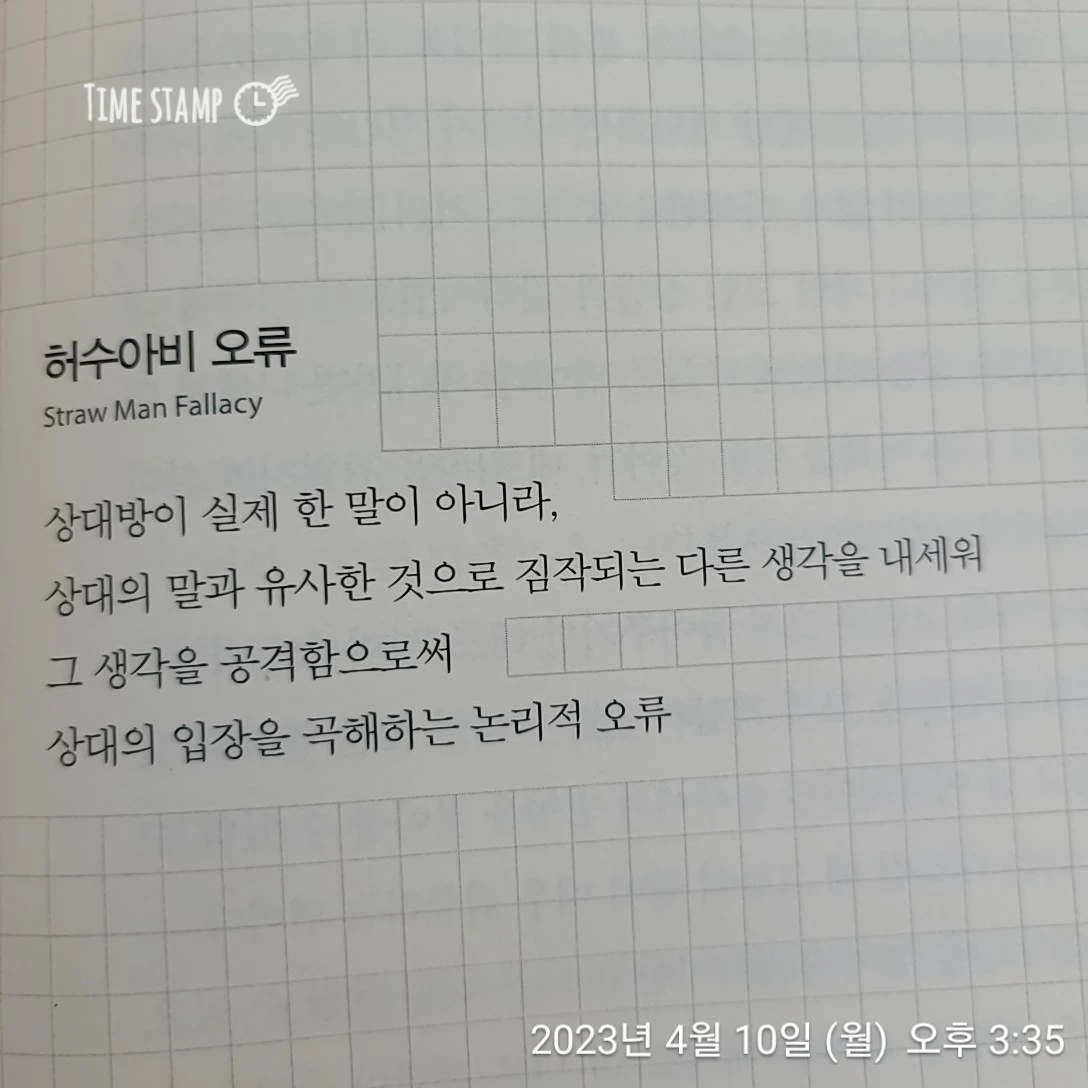 TIME STAMP
허수아비 오류
Straw Man Fallacy
상대방이 실제 한 말이 아니라,
상대의 말과 유사한 것으로 짐작되는 다른 생각을 내세워
그 생각을 공격함으로써
상대의 입장을 곡해하는 논리적 오류
2023년 4월 10일 (월) 오후 3:35